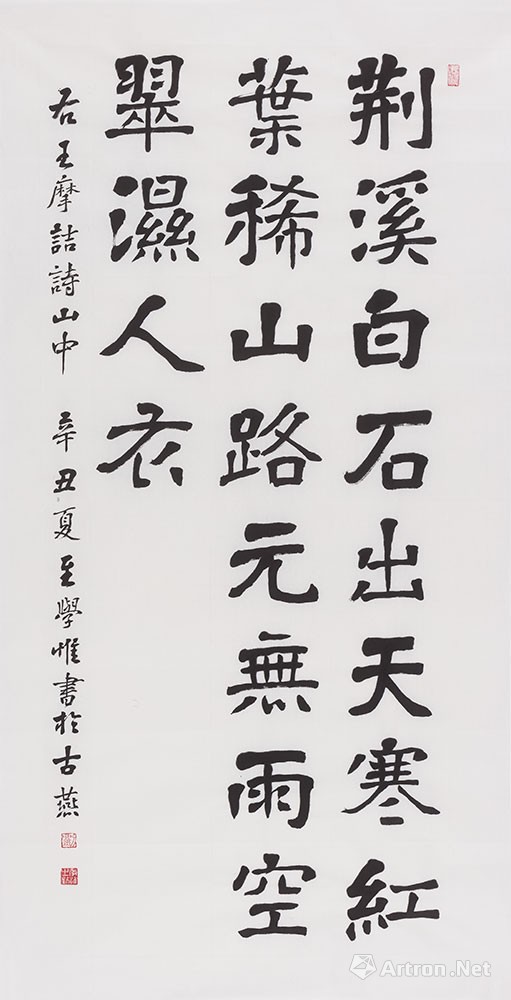 荆溪白石出天寒紅
葉稀山路元無雨空
翠濕人衣
右王摩詰詩山中 辛丑夏至學惟書於古燕
Artron.Net